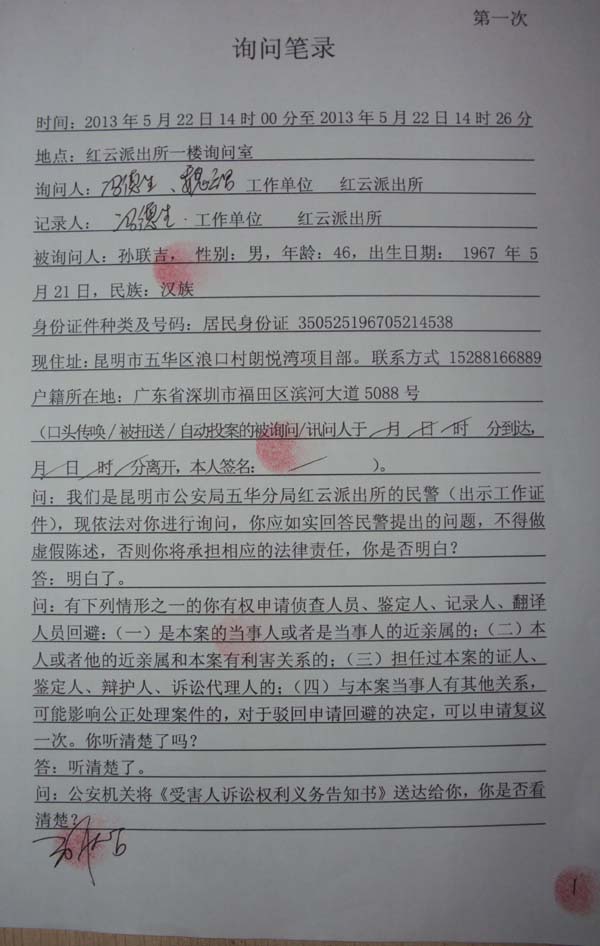 第一次
询问笔录
时间：2013 年 5 月 22 日 14 时 00 分至 2013 年 5 月 22 日 14 时 26 分
地点：红云派出所一楼询问室
询问人：冯德生、 工作单位 红云派出所
记录人：冯德生 工作单位 红云派出所
被询问人：孙联吉， 性别：男，年龄：46，出生日期： 1967 年 5
月 21 日，民族：汉族
身份证件种类及号码：居民身份证 350525196705214538
现住址：昆明市五华区浪口村朗悦湾项目部。联系方式 15288166889
户籍所在地：广东省深圳市福田区滨河大道 5088 号
（口头传唤／被扭送／自动投案的被询问/讯问人于 月 日 时 分到达，
月 日 时 分离开，本人签名： ）。
问：我们是昆明市公安局五华分局红云派出所的民警（出示工作证
件），现依法对你进行询问，你应如实回答民警提出的问题，不得做
虚假陈述，否则你将承担相应的法律责任，你是否明白？
答：明白了。
问：有下列情形之一的你有权申请侦查人员、鉴定人、记录人、翻译
人员回避：（一）是本案的当事人或者是当事人的近亲属的；（二）本
人或者他的近亲属和本案有利害关系的；（三）担任过本案的证人、
鉴定人、辩护人、诉讼代理人的；（四）与本案当事人有其他关系，
可能影响公正处理案件的，对于驳回申请回避的决定，可以申请复议
一次。你听清楚了吗？
答：听清楚了。
问：公安机关将《受害人诉讼权利义务告知书》送达给你，你是否看
清楚？
1